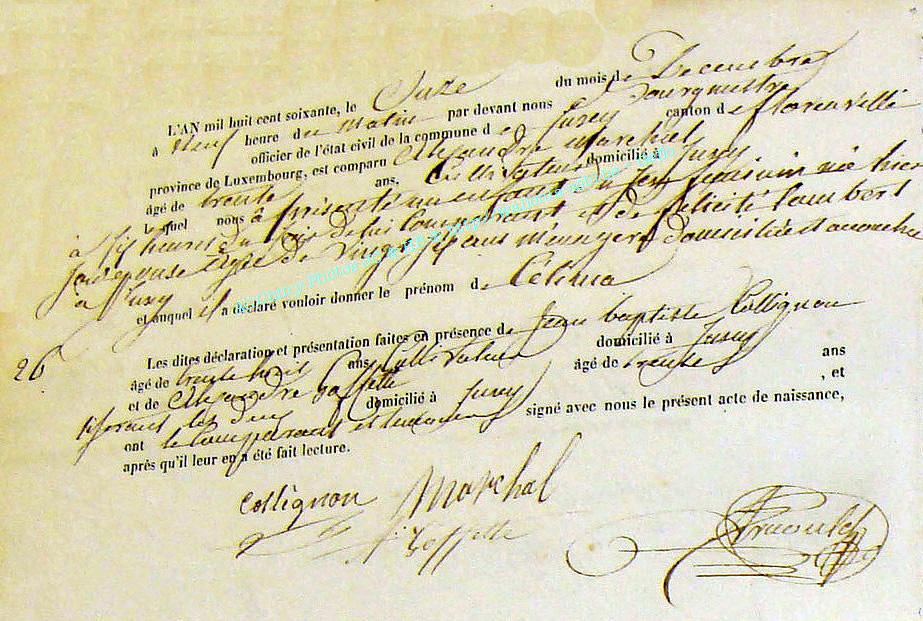 L'AN mil huit cent soixante, le Onze du mois de Decembre
à neuf heure du matin par devant nous Bourgmestre
officier de l'état civil de la commune de Jusey canton de florenville
province de Luxembourg, est comparu Alexandre Marchal
âgé de trente ans, Cultivateur domicilié à Jusey
Lequel nous à présenté un enfant du sexe feminin née hier
à six heures du soir de lui Comparant et de felicité Lambert
son épouse agée de Vingt six ans menagere domiciliée et accouchée
à Jusey
et auquel il a déclaré vouloir donner le prénom de Celina
26
Les dites déclaration et présentation faites en présence de Jean baptiste Collignon
âgé de trente huit ans Cultivateur domicilié à Jusey
et de Alexandre âgé de trente ans
les deux domicilié à Jusey , et
ont le Comparant et temoins signé avec nous le présent acte de naissance,
après qu'il leur en a été fait lecture.
Collignon Marchal